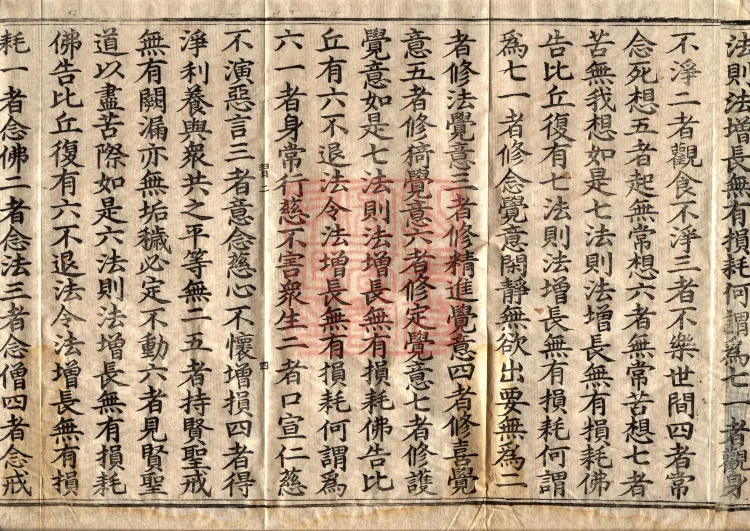 法則法增長無有損耗何謂爲七一者觀身
不淨二者觀食不淨三者不樂世間四者常
念死想五者起無常想六者無常苦想七者
苦無我想如是七法則法增長無有損耗佛
告比丘復有七法則法增長無有損耗何謂
爲七一者修念覺意閑靜無欲出要無爲二
者修法覺意三者修精進覺意四者修喜覺
意五者修猗覺意六者修定覺意七者修護
覺意如是七法則法增長無有損耗佛告比
丘有六不退法令法增長無有損耗何謂爲
六一者身常行慈不害衆生二者口宣仁慈
不演惡言三者意念慈心不懷增損四者得
淨利養與衆共之平等無二五者持賢聖戒
無有闕漏亦無垢穢必定不動六者見賢聖
道以盡苦際如是六法則法增長無有損耗
佛告比丘復有六不退法令法增長無有損
耗一者念佛二者念法三者念僧四者念戒